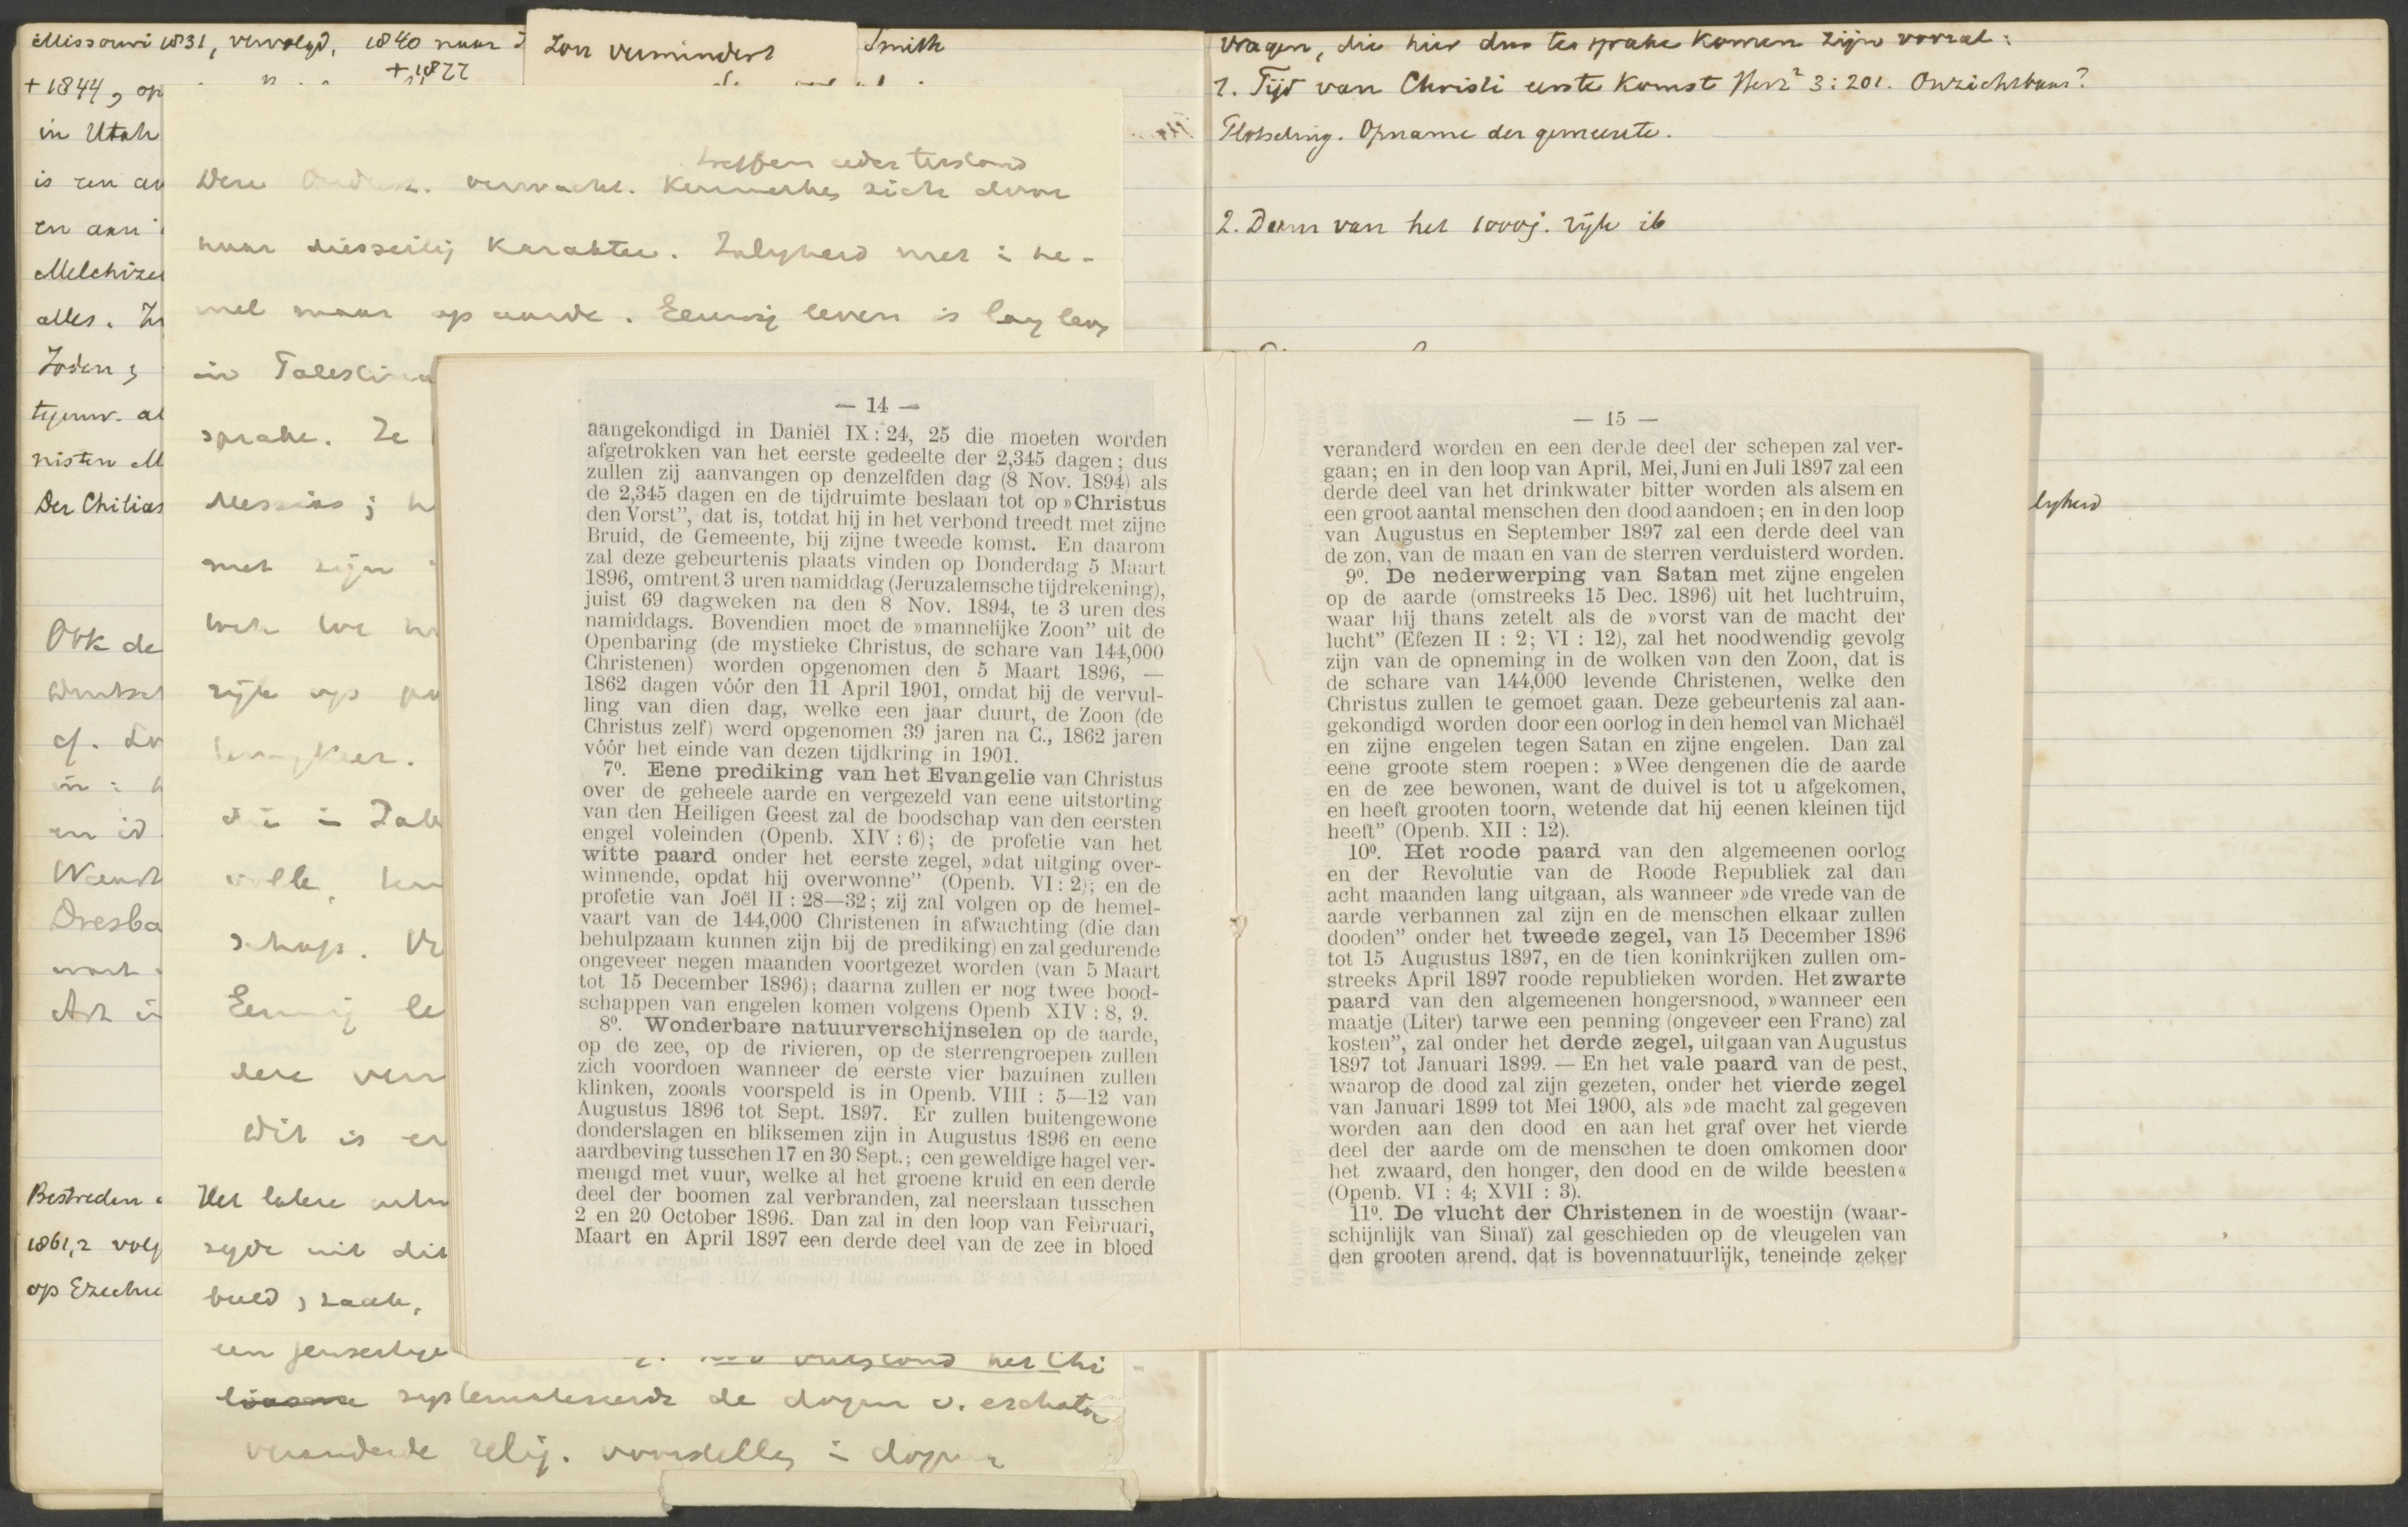 Missouri 1831, vervolgd, 1840 naar
+ 1877
+ 1844, op
in Utah
is een
en aan
Melchize
alles.
Joden;
tegenw. al
nisten M
Der Chilias
Ook de
Duitsch
cf.
en id
Dresba
Bestreden
1861,2 volg
op Ezechie
Zon vermindert
Smith
Deze verwacht. Kenmerken zich door
haar diesseitig karakter. Zaligheid niet i he-
mel maar op aarde. Eeuwig leven is lang leven
in Palestina
sprake. Ze
Messias; h
met zijn
rijk op
volle,
schap.
Eeuwig le
dere verw
Dit is
Het latere
zijde uit dit
beeld, zaak,
een jenseitige
verstond het Chi
systematiseerde de dogm v. eschato
veranderde relig. voorstelling i dogma
vragen, die hier dus ter sprake komen zijn vooral:
1. Tijd van Christi eerste komst Herz² 3:201. Onzichtbaar?
Plotseling. Opname der gemeente.
2. Duur van het 1000j. rijk ib
lijkheid
— 14 —
aangekondigd in Daniël IX : 24, 25 die moeten worden
afgetrokken van het eerste gedeelte der 2,345 dagen; dus
zullen zij aanvangen op denzelfden dag (8 Nov. 1894) als
de 2,345 dagen en de tijdruimte beslaan tot op »Christus
den Vorst”, dat is, totdat hij in het verbond treedt met zijne
Bruid, de Gemeente, bij zijne tweede komst. En daarom
zal deze gebeurtenis plaats vinden op Donderdag 5 Maart
1896, omtrent 3 uren namiddag (Jeruzalemsche tijdrekening),
juist 69 dagweken na den 8 Nov. 1894, te 3 uren des
namiddags. Bovendien moet de »mannelijke Zoon” uit de
Openbaring (de mystieke Christus, de schare van 144,000
Christenen) worden opgenomen den 5 Maart 1896, —
1862 dagen vóór den 11 April 1901, omdat bij de vervul-
ling van dien dag, welke een jaar duurt, de Zoon (de
Christus zelf) werd opgenomen 39 jaren na C., 1862 jaren
vóór het einde van dezen tijdkring in 1901.
7⁰. Eene prediking van het Evangelie van Christus
over de geheele aarde en vergezeld van eene uitstorting
van den Heiligen Geest zal de boodschap van den eersten
engel voleinden (Openb. XIV : 6); de profetie van het
witte paard onder het eerste zegel, »dat uitging over-
winnende, opdat hij overwonne” (Openb. VI : 2); en de
profetie van Joël II : 28—32; zij zal volgen op de hemel-
vaart van de 144,000 Christenen in afwachting (die dan
behulpzaam kunnen zijn bij de prediking) en zal gedurende
ongeveer negen maanden voortgezet worden (van 5 Maart
tot 15 December 1896); daarna zullen er nog twee bood-
schappen van engelen komen volgens Openb XIV : 8, 9.
8⁰. Wonderbare natuurverschijnselen op de aarde,
op de zee, op de rivieren, op de sterrengroepen zullen
zich voordoen wanneer de eerste vier bazuinen zullen
klinken, zooals voorspeld is in Openb. VIII : 5—12 van
Augustus 1896 tot Sept. 1897. Er zullen buitengewone
donderslagen en bliksemen zijn in Augustus 1896 en eene
aardbeving tusschen 17 en 30 Sept.; een geweldige hagel ver-
mengd met vuur, welke al het groene kruid en een derde
deel der boomen zal verbranden, zal neerslaan tusschen
2 en 20 October 1896. Dan zal in den loop van Februari,
Maart en April 1897 een derde deel van de zee in bloed
— 15 —
veranderd worden en een derde deel der schepen zal ver-
gaan; en in den loop van April, Mei, Juni en Juli 1897 zal een
derde deel van het drinkwater bitter worden als alsem en
een groot aantal menschen den dood aandoen; en in den loop
van Augustus en September 1897 zal een derde deel van
de zon, van de maan en van de sterren verduisterd worden.
9⁰. De nederwerping van Satan met zijne engelen
op de aarde (omstreeks 15 Dec. 1896) uit het luchtruim,
waar hij thans zetelt als de »vorst van de macht der
lucht” (Efezen II : 2; VI : 12), zal het noodwendig gevolg
zijn van de opneming in de wolken van den Zoon, dat is
de schare van 144,000 levende Christenen, welke den
Christus zullen te gemoet gaan. Deze gebeurtenis zal aan-
gekondigd worden door een oorlog in den hemel van Michaël
en zijne engelen tegen Satan en zijne engelen. Dan zal
eene groote stem roepen: »Wee dengenen die de aarde
en de zee bewonen, want de duivel is tot u afgekomen,
en heeft grooten toorn, wetende dat hij eenen kleinen tijd
heeft” (Openb. XII : 12).
10⁰. Het roode paard van den algemeenen oorlog
en der Revolutie van de Roode Republiek zal dan
acht maanden lang uitgaan, als wanneer »de vrede van de
aarde verbannen zal zijn en de menschen elkaar zullen
dooden” onder het tweede zegel, van 15 December 1896
tot 15 Augustus 1897, en de tien koninkrijken zullen om-
streeks April 1897 roode republieken worden. Het zwarte
paard van den algemeenen hongersnood, »wanneer een
maatje (Liter) tarwe een penning (ongeveer een Franc) zal
kosten”, zal onder het derde zegel, uitgaan van Augustus
1897 tot Januari 1899. — En het vale paard van de pest,
waarop de dood zal zijn gezeten, onder het vierde zegel
van Januari 1899 tot Mei 1900, als »de macht zal gegeven
worden aan den dood en aan het graf over het vierde
deel der aarde om de menschen te doen omkomen door
het zwaard, den honger, den dood en de wilde beesten«
(Openb. VI : 4; XVII : 3).
11⁰. De vlucht der Christenen in de woestijn (waar-
schijnlijk van Sinaï) zal geschieden op de vleugelen van
den grooten arend, dat is bovennatuurlijk, teneinde zeker